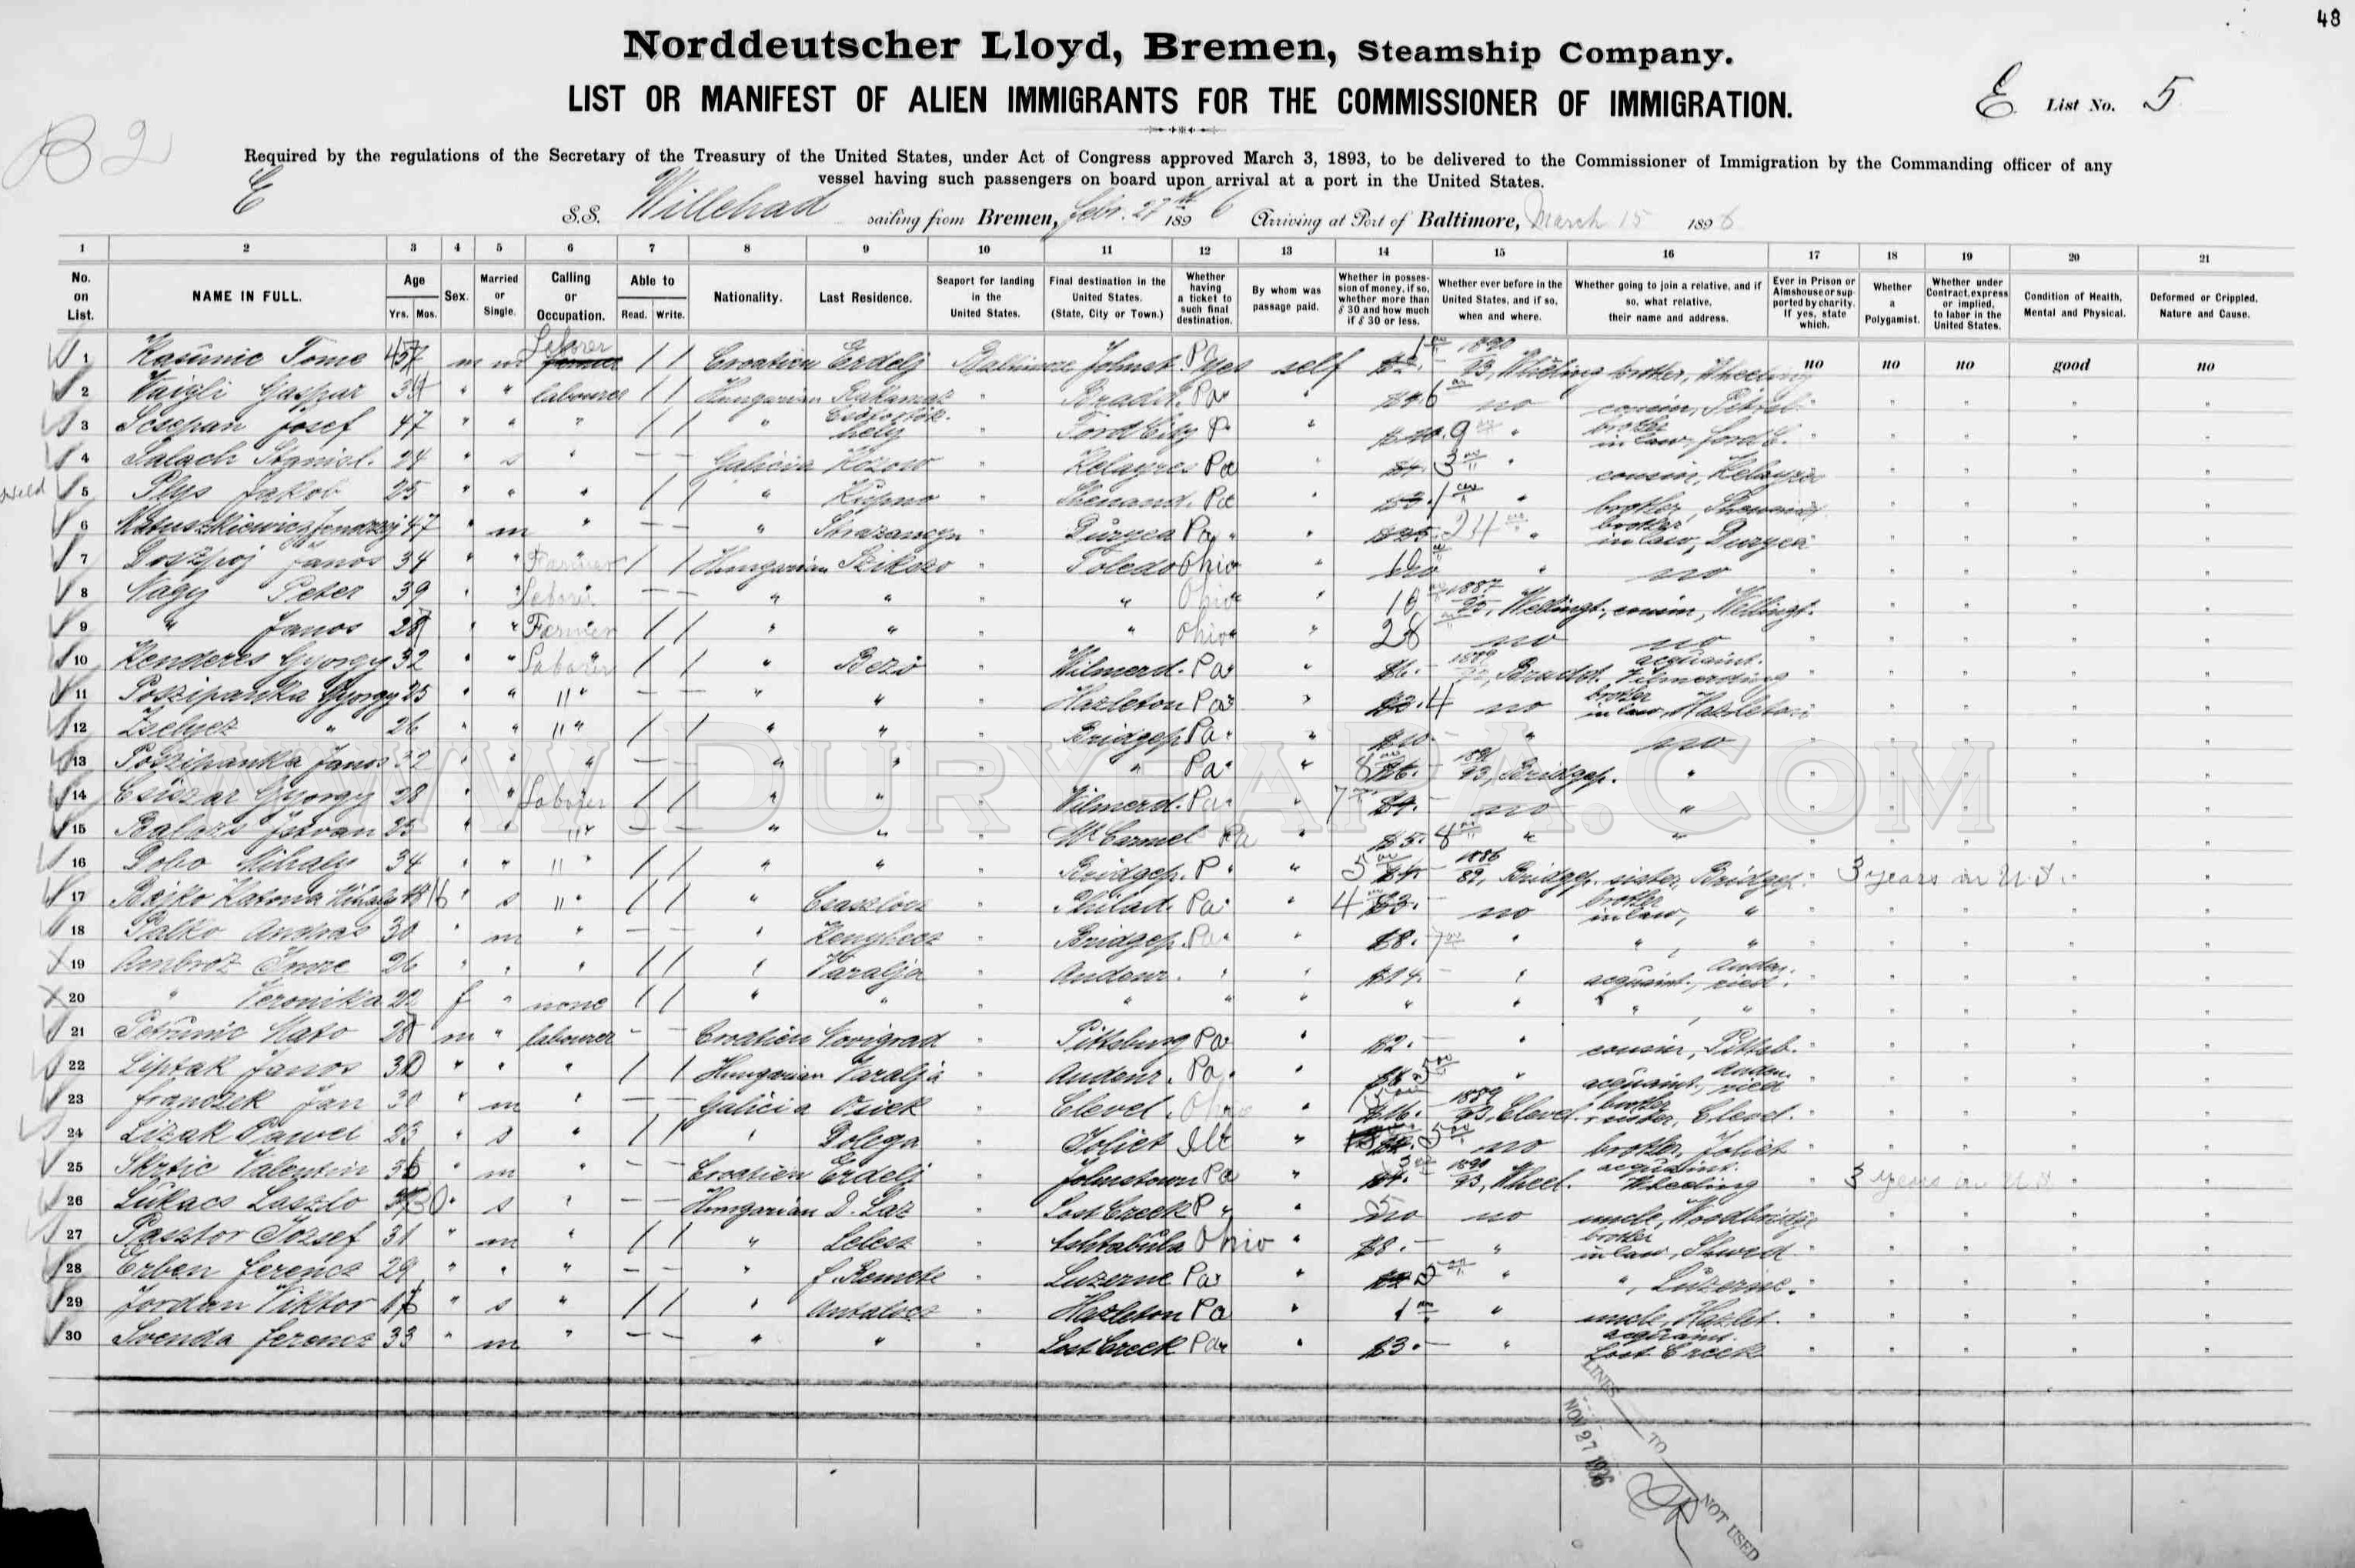 48
Norddeutscher Lloyd, Bremen, Steamship Company.
LIST OR MANIFEST OF ALIEN IMMIGRANTS FOR THE COMMISSIONER OF IMMIGRATION.
E List No. 5
B 2
Required by the regulations of the Secretary of the Treasury of the United States, under Act of Congress approved March 3, 1893, to be delivered to the Commissioner of Immigration by the Commanding officer of any
vessel having such passengers on board upon arrival at a port in the United States.
E
S.S. Willehad sailing from Bremen, Febr. 27th 1896 Arriving at Port of Baltimore, March 15 1896
1 2 3 4 5 6 7 8 9 10 11 12 13 14 15 16 17 18 19 20 21
No. on List. NAME IN FULL. Age Yrs. Mos. Sex. Married or Single. Calling or Occupation. Able to Read. Write. Nationality. Last Residence. Seaport for landing in the United States. Final destination in the United States. (State, City or Town.) Whether having a ticket to such final destination. By whom was passage paid. Whether in possession of money, if so, whether more than $ 30 and how much if $ 30 or less. Whether ever before in the United States, and if so, when and where. Whether going to join a relative, and if so, what relative, their name and address. Ever in Prison or Almshouse or supported by charity. If yes, state which. Whether a Polygamist. Whether under Contract, express or implied, to labor in the United States. Condition of Health, Mental and Physical. Deformed or Crippled, Nature and Cause.
1 Tome m m Laborer / / Croatien Erdelj Baltimore Johnst. Pa yes self 1890 93, Wheeling brother, Wheeling no no no good no
2 Gaspar " " labourer / / Hungarian Rakamaz " Bradd. Pa " 6 no cousin, Pittsb. " " " " "
3 Josef 47 " " " / / " hely " Ford City P " 9 " brother in law, Ford C. " " " " "
4 Salach Stanisl. 24 " s " — — Galicia Kozow " Kelayres Pa " 3 " cousin, Kelayres " " " " "
Held 5 Plys Jakob 25 " " " / / " Kupno " Shenand. Pa " 1 " brother, " " " " "
6 Matuszkiewicz Jendrzej 47 " m " — — " " Duryea Pa " 24 " brother in law, Duryea " " " " "
7 Janos 34 " " Farmer / / Hungarian Szikszo " Toledo Ohio " 10 " no " " " " "
8 Nagy Peter 39 " " Laborer — — " " " " Ohio " 10 1887 95, Wellingt. cousin, Wellingt. " " " " "
9 " Janos " " Farmer / / " " " " Ohio " 28 no no " " " " "
10 Kenderes György 32 " " Laborer / / " Bezö " Wilmerd. Pa " $6. 1889 Bradd. acquaint. Vilmerding " " " " "
11 Poszipanka György 25 " " " — — " " " Hazleton Pa " 4 no brother in law, Hazleton " " " " "
12 Zselyez " 26 " " " / / " " " Bridgep. Pa " $10. " no " " " " "
13 Poszipanka Janos 32 " " " — — " " " " Pa " 8 1891 93, Bridgep. " " " " " "
14 Csiszar György 28 " " Laborer / / " " " Wilmerd. Pa " 7 no " " " " " "
15 Balazs Istvan 25 " " " — — " " " Mt Carmel Pa " $5. 8 " " " " " " "
16 Dobo Mihaly 34 " " " / / " " " Bridgep. P " 5 1886 89, Bridgep. sister, Bridgep. " 3 years in U.S. " "
17 Katona Mihaly " s " / / " " Philad. Pa " 4 no brother in law, " " " " " "
18 Palko Andras 30 " m " — — " " Bridgep. Pa " $8. " " , " " " " " "
19 Ambroz Imre 26 " " " / / " Varalja " Andenr. " " $14. " acquaint., Anden. ried. " " " " "
20 " Veronika 22 f " none / / " " " " " " " " " , " " " " " "
21 Petrunic Mato m " labourer — — Croatien Novigrad " Pittsburg Pa " $2. " cousin, Pittsb. " " " " "
22 Liptak Janos " " " / / Hungarian Varalja " Andenr. Pa " " acquaint., Anden. ried " " " " "
23 Franczek Jan 30 " m " — — Galicia Osiek " Clevel. Ohio " $16. 1889 93, Clevel. Clevel. " " " " "
24 Lizak Pawel 23 " s " / / " Dolega " Joliet Ill " no brother, Joliet " " " " "
25 Skrtic Valentin " m " — — Croatien Erdelj " Johnstown Pa " 1890 93, Wheel. acquaint. Wheeling " 3 years in U.S. " "
26 Lukacs Laszlo 30 " s " — — Hungarian D. Laz " Lost Creek P " no no uncle, Woodbridge " " " " "
27 Pasztor Jozsef 31 " m " / / " Lelesz " Ashtabula Ohio " $8. " brother in law, " " " " "
28 Erben Ferencz 29 " " " — — " f. Remete " Luzerne Pa " " ", Luzerne. " " " " "
29 Jordan Viktor " s " / / " Antalocz " Hazleton Pa " 1 " uncle, Hazlet. " " " " "
30 Svenda Ferencz 33 " m " — — " " " Lost Creek Pa " $3. " acquaint. Lost Creek " " " " "
LINES TO NOT USED
NOV 27 1936
WWW.DURYEAPA.COM